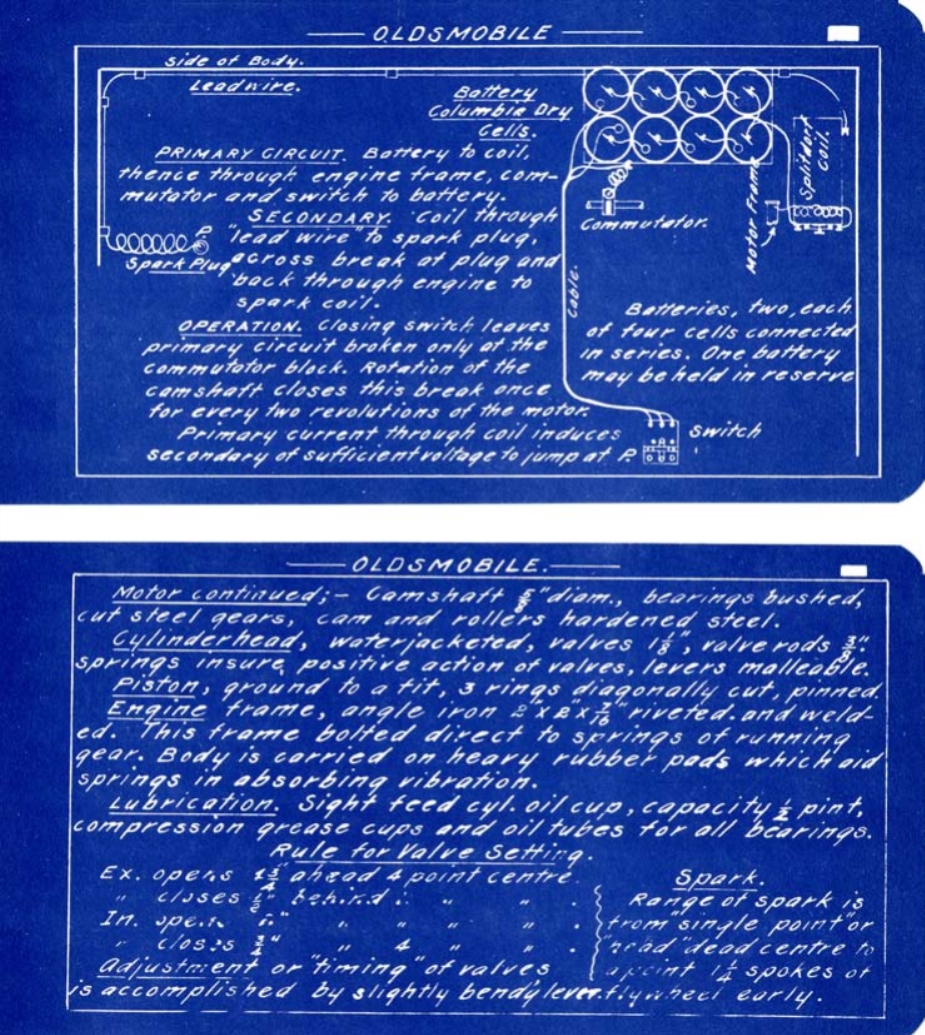 OLDSMOBILE
Side of Body.
Leadwire.
Battery
Columbia Dry
Cells.
Splitdorf
Coil.
Motor Frame
Commutator.
PRIMARY CIRCUIT. Battery to coil,
thence through engine frame, com-
mutator and switch to battery.
SECONDARY. Coil through
"lead wire" to spark plug,
across break at plug and
back through engine to
spark coil.
P.
Spark Plug
OPERATION. Closing switch leaves
primary circuit broken only at the
commutator block. Rotation of the
camshaft closes this break once
for every two revolutions of the motor.
Primary current through coil induces
secondary of sufficient voltage to jump at P.
Cable.
Batteries, two, each
of four cells connected
in series. One battery
may be held in reserve
Switch
OLDSMOBILE.
Motor continued;- Camshaft "diam., bearings bushed,
cut steel gears, cam and rollers hardened steel.
Cylinderhead, waterjacketed, valves 1⅛", valve rods
springs insure positive action of valves, levers malleable.
Piston, ground to a fit, 3 rings diagonally cut, pinned.
Engine frame, angle iron 2"x2"x 7/16" riveted and weld-
ed. This frame bolted direct to springs of running
gear. Body is carried on heavy rubber pads which aid
springs in absorbing vibration.
Lubrication. Sight feed cyl. oil cup, capacity ½ pint,
compression grease cups and oil tubes for all bearings.
Rule for Valve Setting.
Ex. opens 1¾" ahead 4 point centre.
" closes ½" behind " " " .
In. opens " " " " .
" closes ¾" " 4 " " .
Adjustment or "timing" of valves
is accomplished by slightly bendg lever.
Spark.
Range of spark is
from "single point" or
dead centre to
a point 1¼ spokes of
flywheel early.